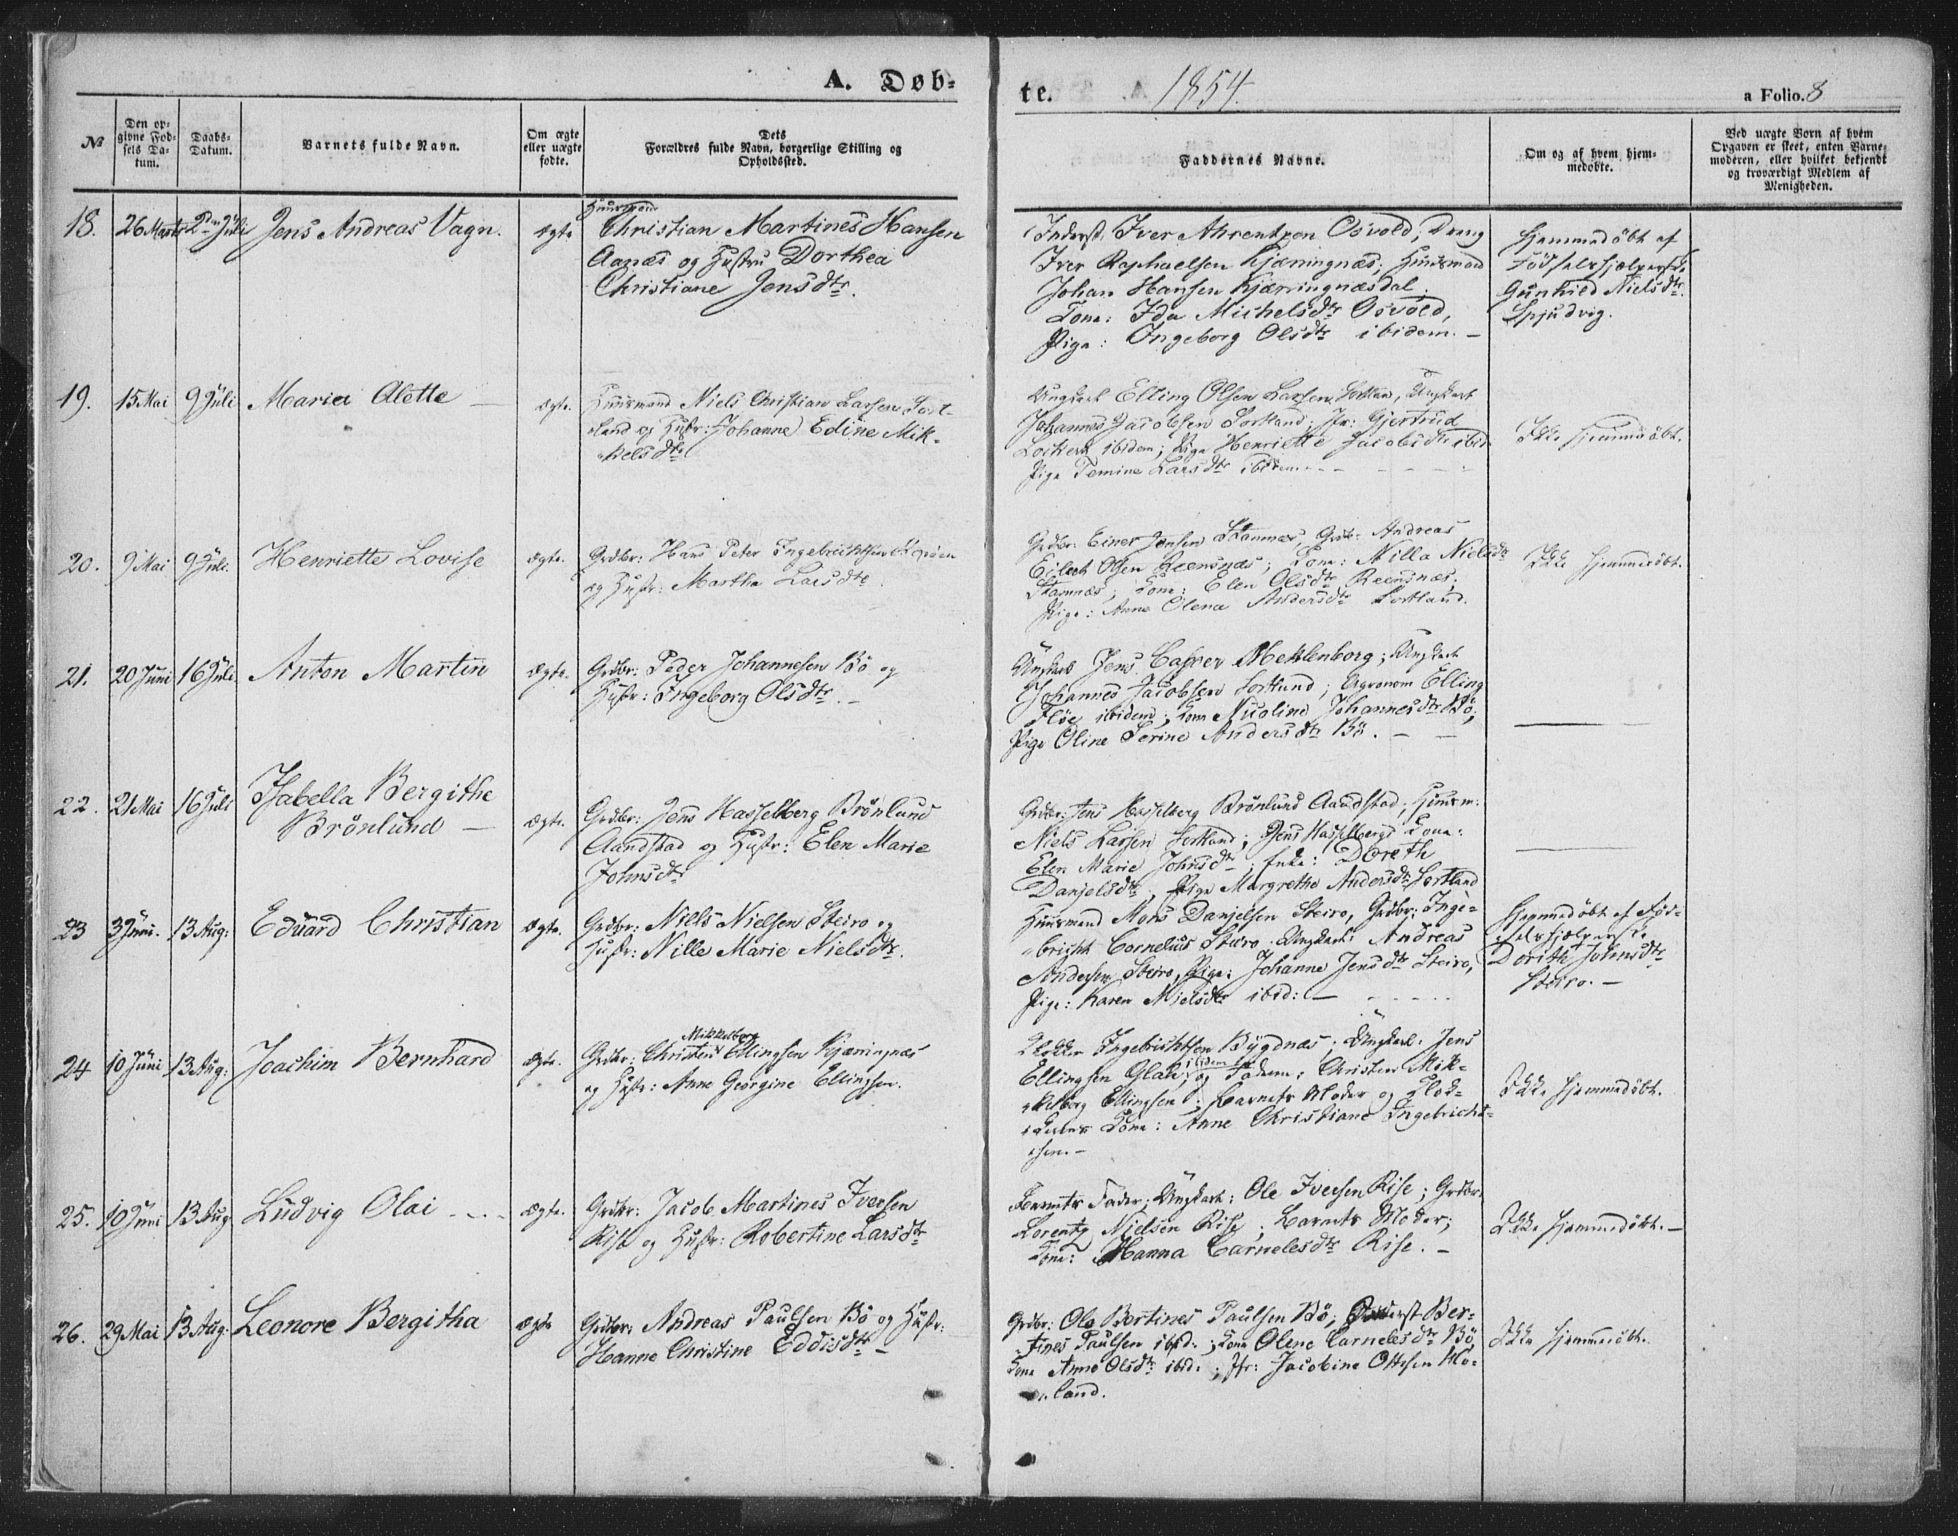 A. Døb-
te. 1854. a Folio. 8
№
Den op-
givne Fød-
sels Da-
tum.
Daabs-
Datum.
Barnets fulde Navn.
Om ægte
eller uægte
fødte.
Dets
Forældres fulde Navn, borgerlige Stilling og
Opholdssted.
Faddernes Navne.
Om og af hvem hjem-
medøbte.
Ved uægte Børn af hvem
Opgaven er skeet, enten Barne-
moderen, eller hvilket bekjendt
og troværdigt Medlem af
Menigheden.
18. 26 Marts 2den Juli Jens Andreas Vagn. ægte
Huusmand
Christian Martines Hansen
Aanæs og Hustru Dorthea
Christiane Jensdtr.
Inderst Iver Ahrentzen Osvold, Dreng
Iver Raphaelsen Kjæringnæs; Huusmand
Johan Hansen Kjærringnæsdal.
Kone: Ida Michelsdtr Osvold,
Pige: Ingeborg Olsdtr ibidem. –
Hjemmedøbt af
Fødselshjælperske
Gunhild Nielsdtr.
Spjudvig.
19. 15 Mai 9 Juli Maria Alette – ægte.
Huusmand Niels Christian Larsen Sort-
land og Hustr: Johanne Edine Mik-
kelsdtr
Ungkarl Elling Olsen Larsen Sortland, Ungkarl
Johannes Jacobsen Sortland; Jfr: Gjertrud
ibidem; Pige Henriette Jacobsdtr ibid.
Pige Temine Larsdtr ibidem. - - -
Ikke hjemmedøbt.
20. 9 Mai 9 Juli. Henriette Lovise ægte.
Grdbr: Hans Peter Ingebrichtsen
og Hustr: Martha Larsdtr.
Grdbr: Einer Jensen Stamnæs, Grdb: Andreas
Eilert Olsen Reensnæs; Kone: Nilla Nielsdtr
Stamnæs; Kone: Elen Olsdtr Reensnæs.
Pige: Anne Olena Andersdtr Sortland.
Ikke hjemmedøbt.
21. 20 Juni 16 Juli Anton Martin ægte.
Grdbr: Peder Johannesen Bö og
Hustr: Ingeborg Olsdtr. –
Ungkarl Jens Casper Mechlenborg; Ungkarl
Johannes Jacobsen Sortland; Agronom Elling
Fløe ibidem; Kone Nicoline Johannesdtr Bö;
Pige Oline Serine Andersdtr Bö. – –
22. 21 Mai 16 Juli
Isabella Bergithe
Brönlund – ægte.
Grdbr: Jens Hasselberg Brönlund
Aandstad og Hustr: Elen Marie
Johnsdtr
Grdbr: Jens Hasselberg Brönlund Aandstad; Huusm:
Niels Larsen Sortland; Jens Hasselbergs Kone:
Elen Marie Johnsdtr; Enke: Doreth
Danjelsdtr, Pige Margrethe Andersdtr Sortland
23 3 Juni. 13 Aug: Eduard Christian ægte.
Grdbr: Niels Nielsen Steiro og
Hustr: Nille Marie Nielsdtr.
Huusmand Mons Danjelsen Steiro, Grdbr: Inge-
bright Cornelius Steiro. Ungkarl: Andreas
Andersen Steiro, Pige: Johanne Jensdtr Steiro,
Pige: Karen Nielsdtr ibid: –
Hjemmedøbt af Fød-
selshjælperske
Dorith Johnsdtr
Steiro. –
24 10 Juni 13 Aug: Joachim Bernhard ægte.
Mikkelborg
Grdbr: Christen Ellingsen Kjæringnæs
og Hustr: Anne Georgine Ellingsen.
Klokker Ingebrichtsen Bygdnæs; Ungkarl: Jens
Ellingsen ibidem og Faderen: Christen Mik-
kelborg Ellingsen; Barnets Moder og Klok-
kerens Kone: Anne Christiane Ingebricht-
sen. –
Ikke hjemmedøbt.
25. 10 Juni 13 Aug Ludvig Olai - . - . ægte.
Grdbr: Jacob Martines Iversen
Rise og Hustr: Robertine Larsdtr
Barnets Fader; Ungkarl: Ole Iversen Rise; Grdbr.
Lorentz Nielsen Rise; Barnets Moder;
Kone: Hanna Carnelesdtr Rise. –
Ikke hjemmedøbt. –
26. 29 Mai 13 Aug: Leonore Bergitha ægte
Grdbr: Andreas Paulsen Bö og Hustr:
Hanne Christine Eddisdtr –
Grdbr: Ole Bertines Paulsen Bö; Inderst Ber-
tines Paulsen ibid:; Kone Olene Carnelesdtr Bö,
Kone Anne Olsdtr ibid:; Jfr: Jacobine Ottesen Ho-
land.
Ikke hjemmedøbt.